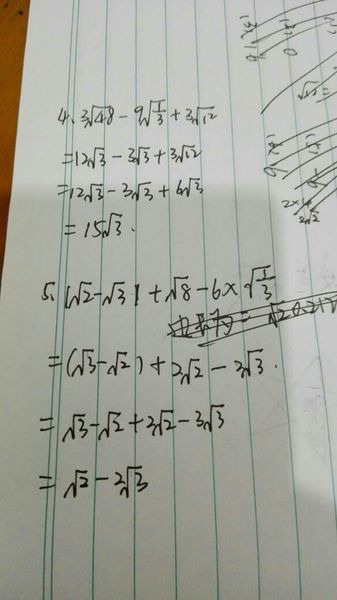 4、3√48 - 9√(1/3) + 3√12
= 12√3 - 3√3 + 3√12
= 12√3 - 3√3 + 6√3
= 15√3 .
5、|√2 - √3| + √8 - 6 × √(1/3)
= (√3 - √2) + 2√2 - 2√3 .
= √3 - √2 + 2√2 - 3√3
= √2 - 2√3